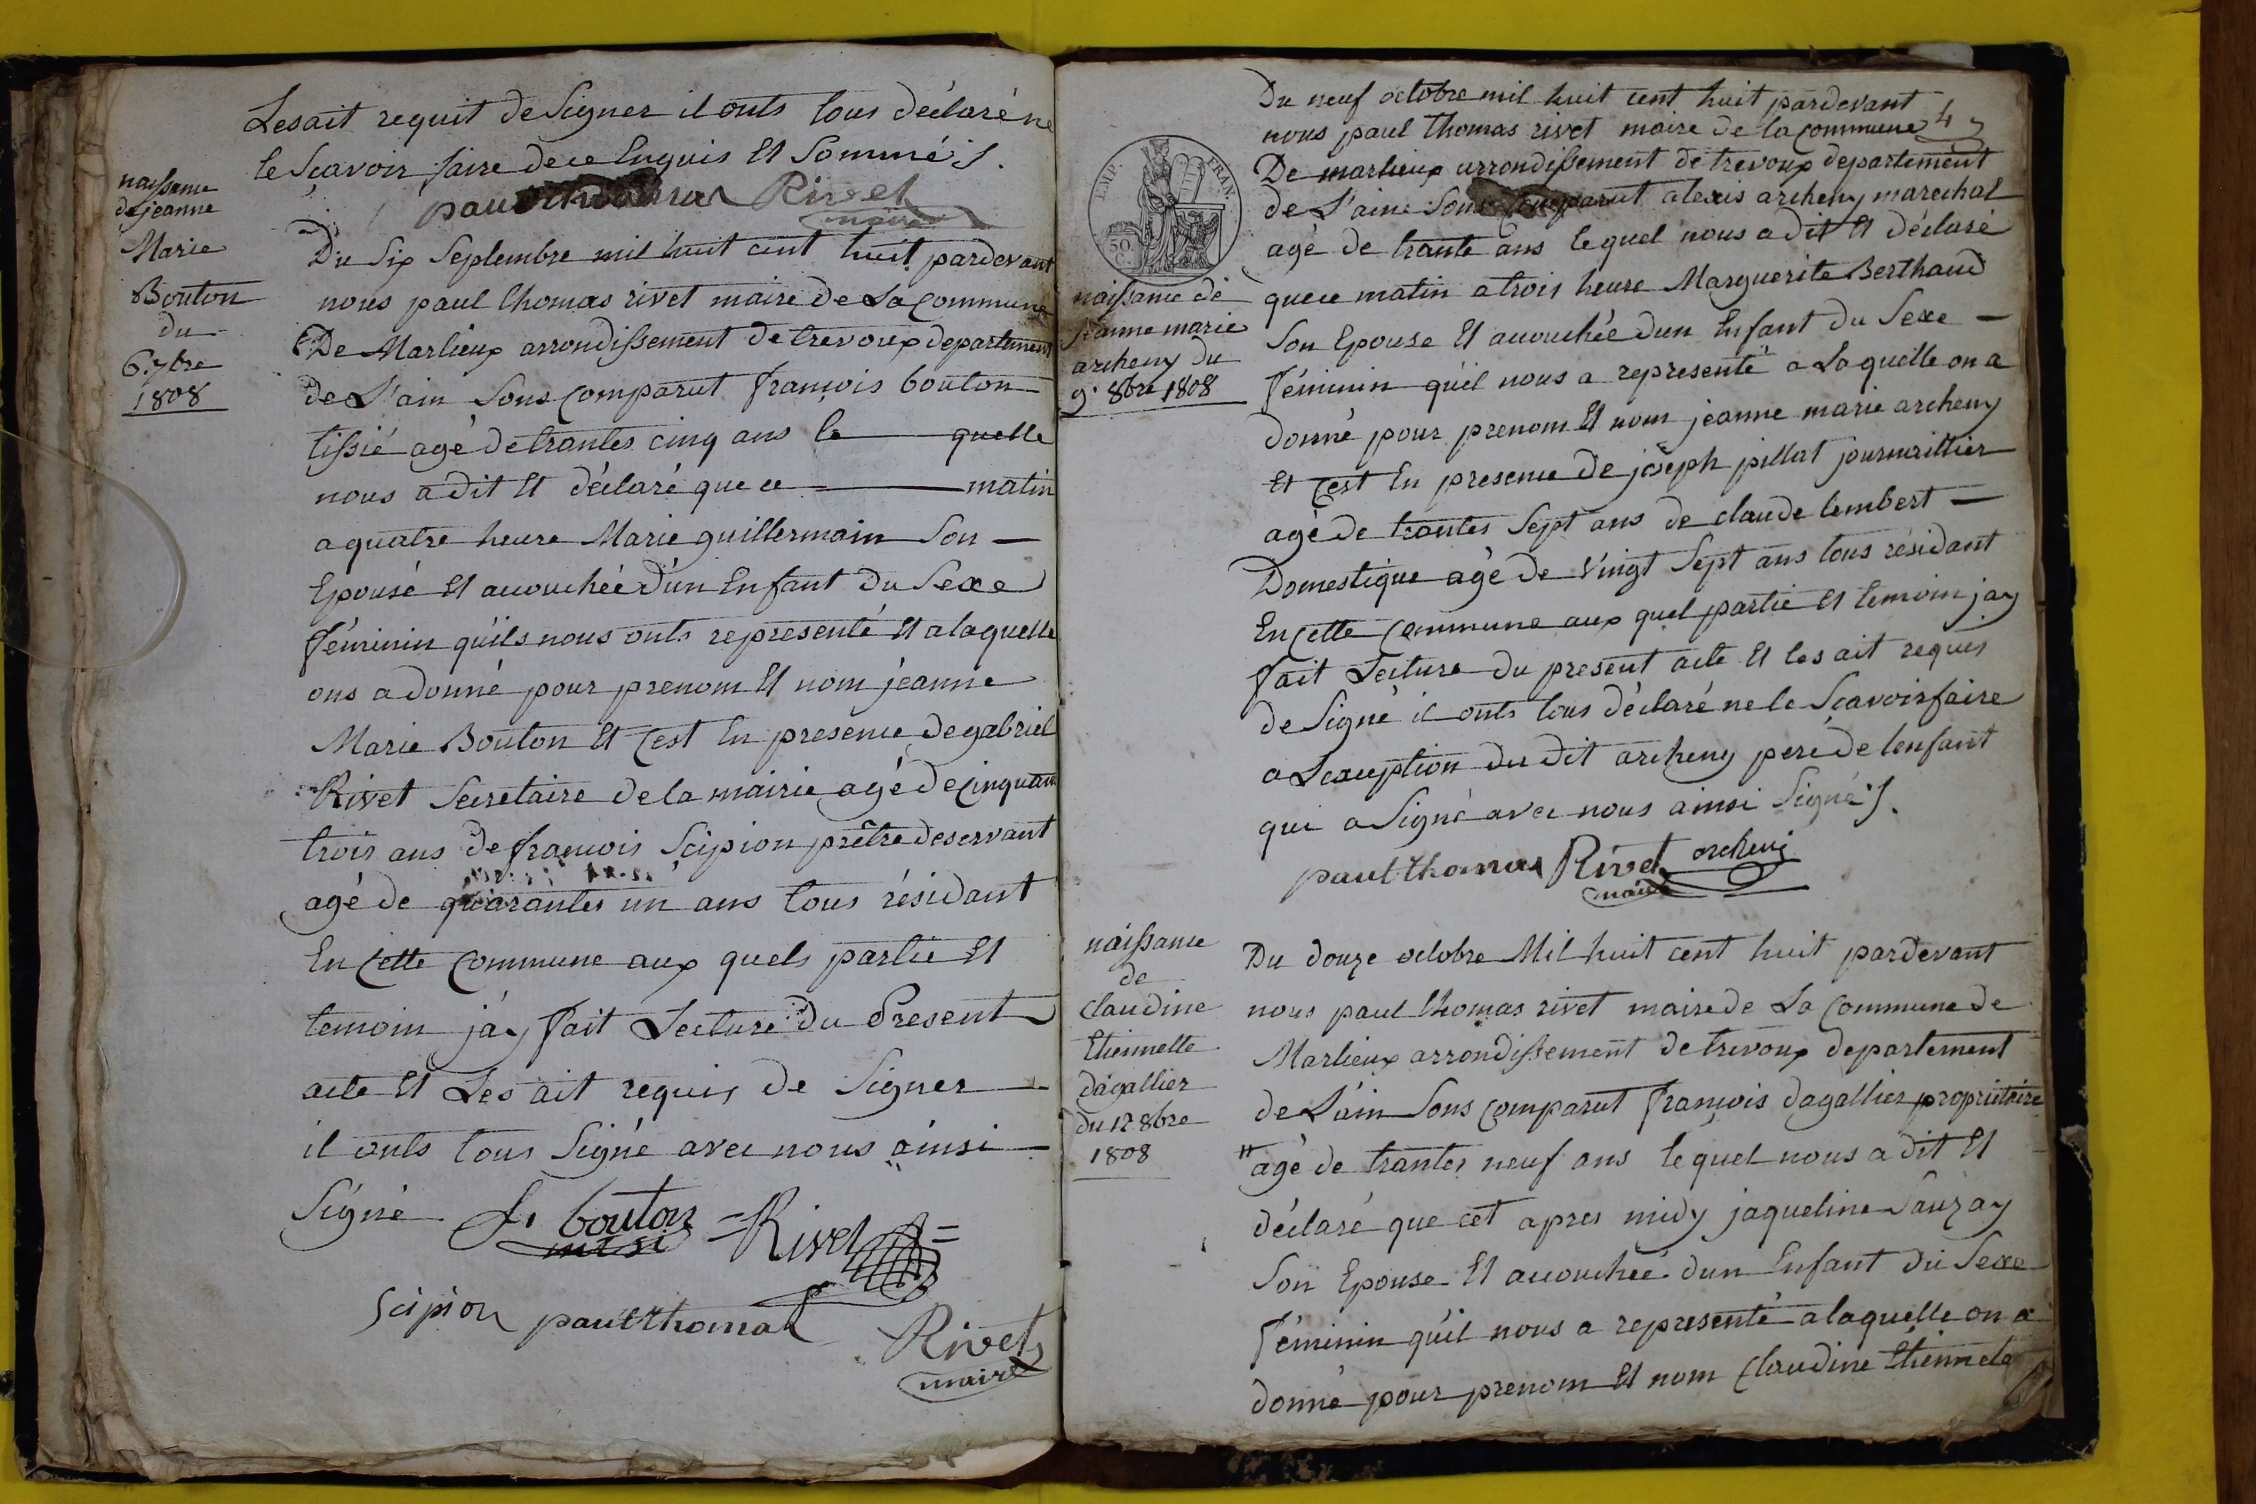 Lesait requit de Signer il onts tous déclaré ne
le Sçavoir faire de ce Enquis Et Sommé's.
paul thomas Rivet
maire
naissance
de jeanne
Marie
Bouton
du
6. 7bre
1808
Du Six Septembre mil huit cent huit pardevant
nous paul thomas rivet maire de La Commune
De Marlieux arrondissement de trevoux departement
de L'ain Sons Comparut françois bouton
tissié agé de trantes cinq ans le quelle
nous a dit Et déclaré que ce matin
a quatre heure Marie guillermain Son
Epousé Et acouchée d'un Enfant du Sexe
féminin quils nous onts representé Et a laquelle
ons a donné pour prenom Et nom jéanne
Marie Bouton Et C'est En presence de gabriel
Rivet Secretaire de la mairie agé de Cinquan
trois ans de françois Scipion prêtre deservant
agé de quarantes un ans tous résidant
En Cette Commune aux quels partie Et
temoin j'ay fait Lecture du Present
acte Et Les ait requis de Signer
il onts tous Signé avec nous ainsi
Signé
bouton
Rivet
Scipion paul thomas
Rivet
maire
4
IMP. FRAN.
50
C.
Du neuf octobre mil huit cent huit pardevant
nous paul thomas rivet maire de la Commune
De marlieux arrondissement de trevoux departement
de L'ain Sons Comparut alexis archeny marechal
agé de trante ans lequel nous a dit Et déclaré
que ce matin a trois heure Marguerite Berthaud
Son Epouse Et acouchée dun Enfant du Sexe
féminin quil nous a representé a Laquelle on a
donné pour prenom Et nom jeanne marie archeny
Et C'est En presence de joseph pillat journaillier
agé de trantes Sept ans de claude lembert
Domestique agé de Vingt Sept ans tous résidant
En Cette Commune aux quel partie Et temoin jay
fait Lecture du present acte Et les ait requis
de Signé il onts tous déclaré ne le Scavoir faire
a Lexception du dit archeny pere de lenfant
qui a Signé avec nous ainsi Signé's.
paul thomas Rivet archeni
maire
naissance de
jeanne marie
archeny du
9. 8bre 1808
naissance
de
Claudine
Etiennette
dagallier
du 12 8bre
1808
Du douze octobre Mil huit cent huit pardevant
nous paul thomas rivet maire de La Commune de
Marlieux arrondissement de trevoux departement
de L'ain Sons Comparut françois dagallier proprietaire
agé de trantes neuf ans lequel nous a dit Et
déclaré que cet apres midy jaqueline Sauzay
Son Epouse Et acouchée dun Enfant du Sexe
féminin quil nous a representé a laquelle on a
donné pour prenom Et nom Claudine Etiennete